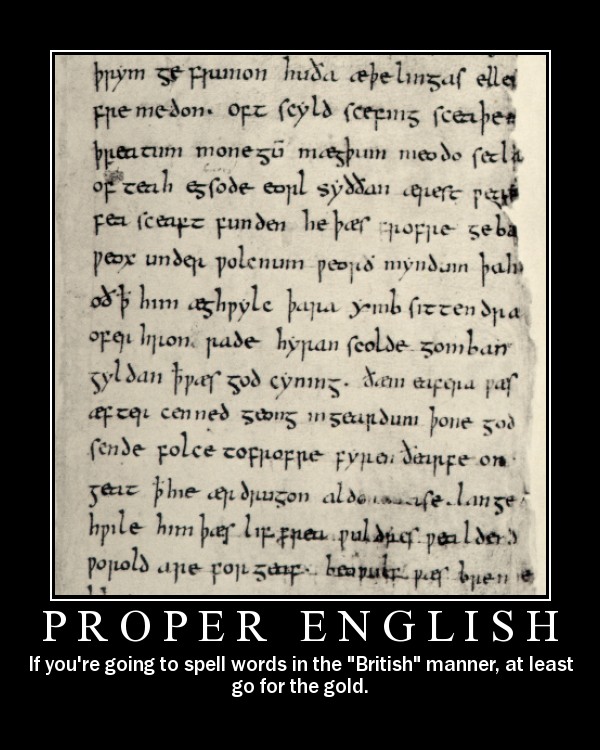 þrym ge frumon huða æþelingas elle
fremedon. oft scyld scefing sceaþe
þreatum monegū mægþum meodo setla
of teah egsode eorl syððan ærest
fea sceaft funden he þæs frofre geba
ƿeox under ƿolcnum ƿeorð myndum þah
oð ꝥ him æghƿylc þara ymb sittendra
ofer hron rade hyran scolde gomban
gyldan ꝥ ƿæs god cyning. ðæm eafera ƿæs
æfter cenned geong in geardum þone god
sende folce tofrofre fyren ðearfe on
geat ꝥ hie ær drugon lange
hƿile him þæs lif frea ƿuldres ƿealdend
ƿorold are forgeaf. beoƿulf ƿæs breme
PROPER ENGLISH
If you're going to spell words in the "British" manner, at least
go for the gold.